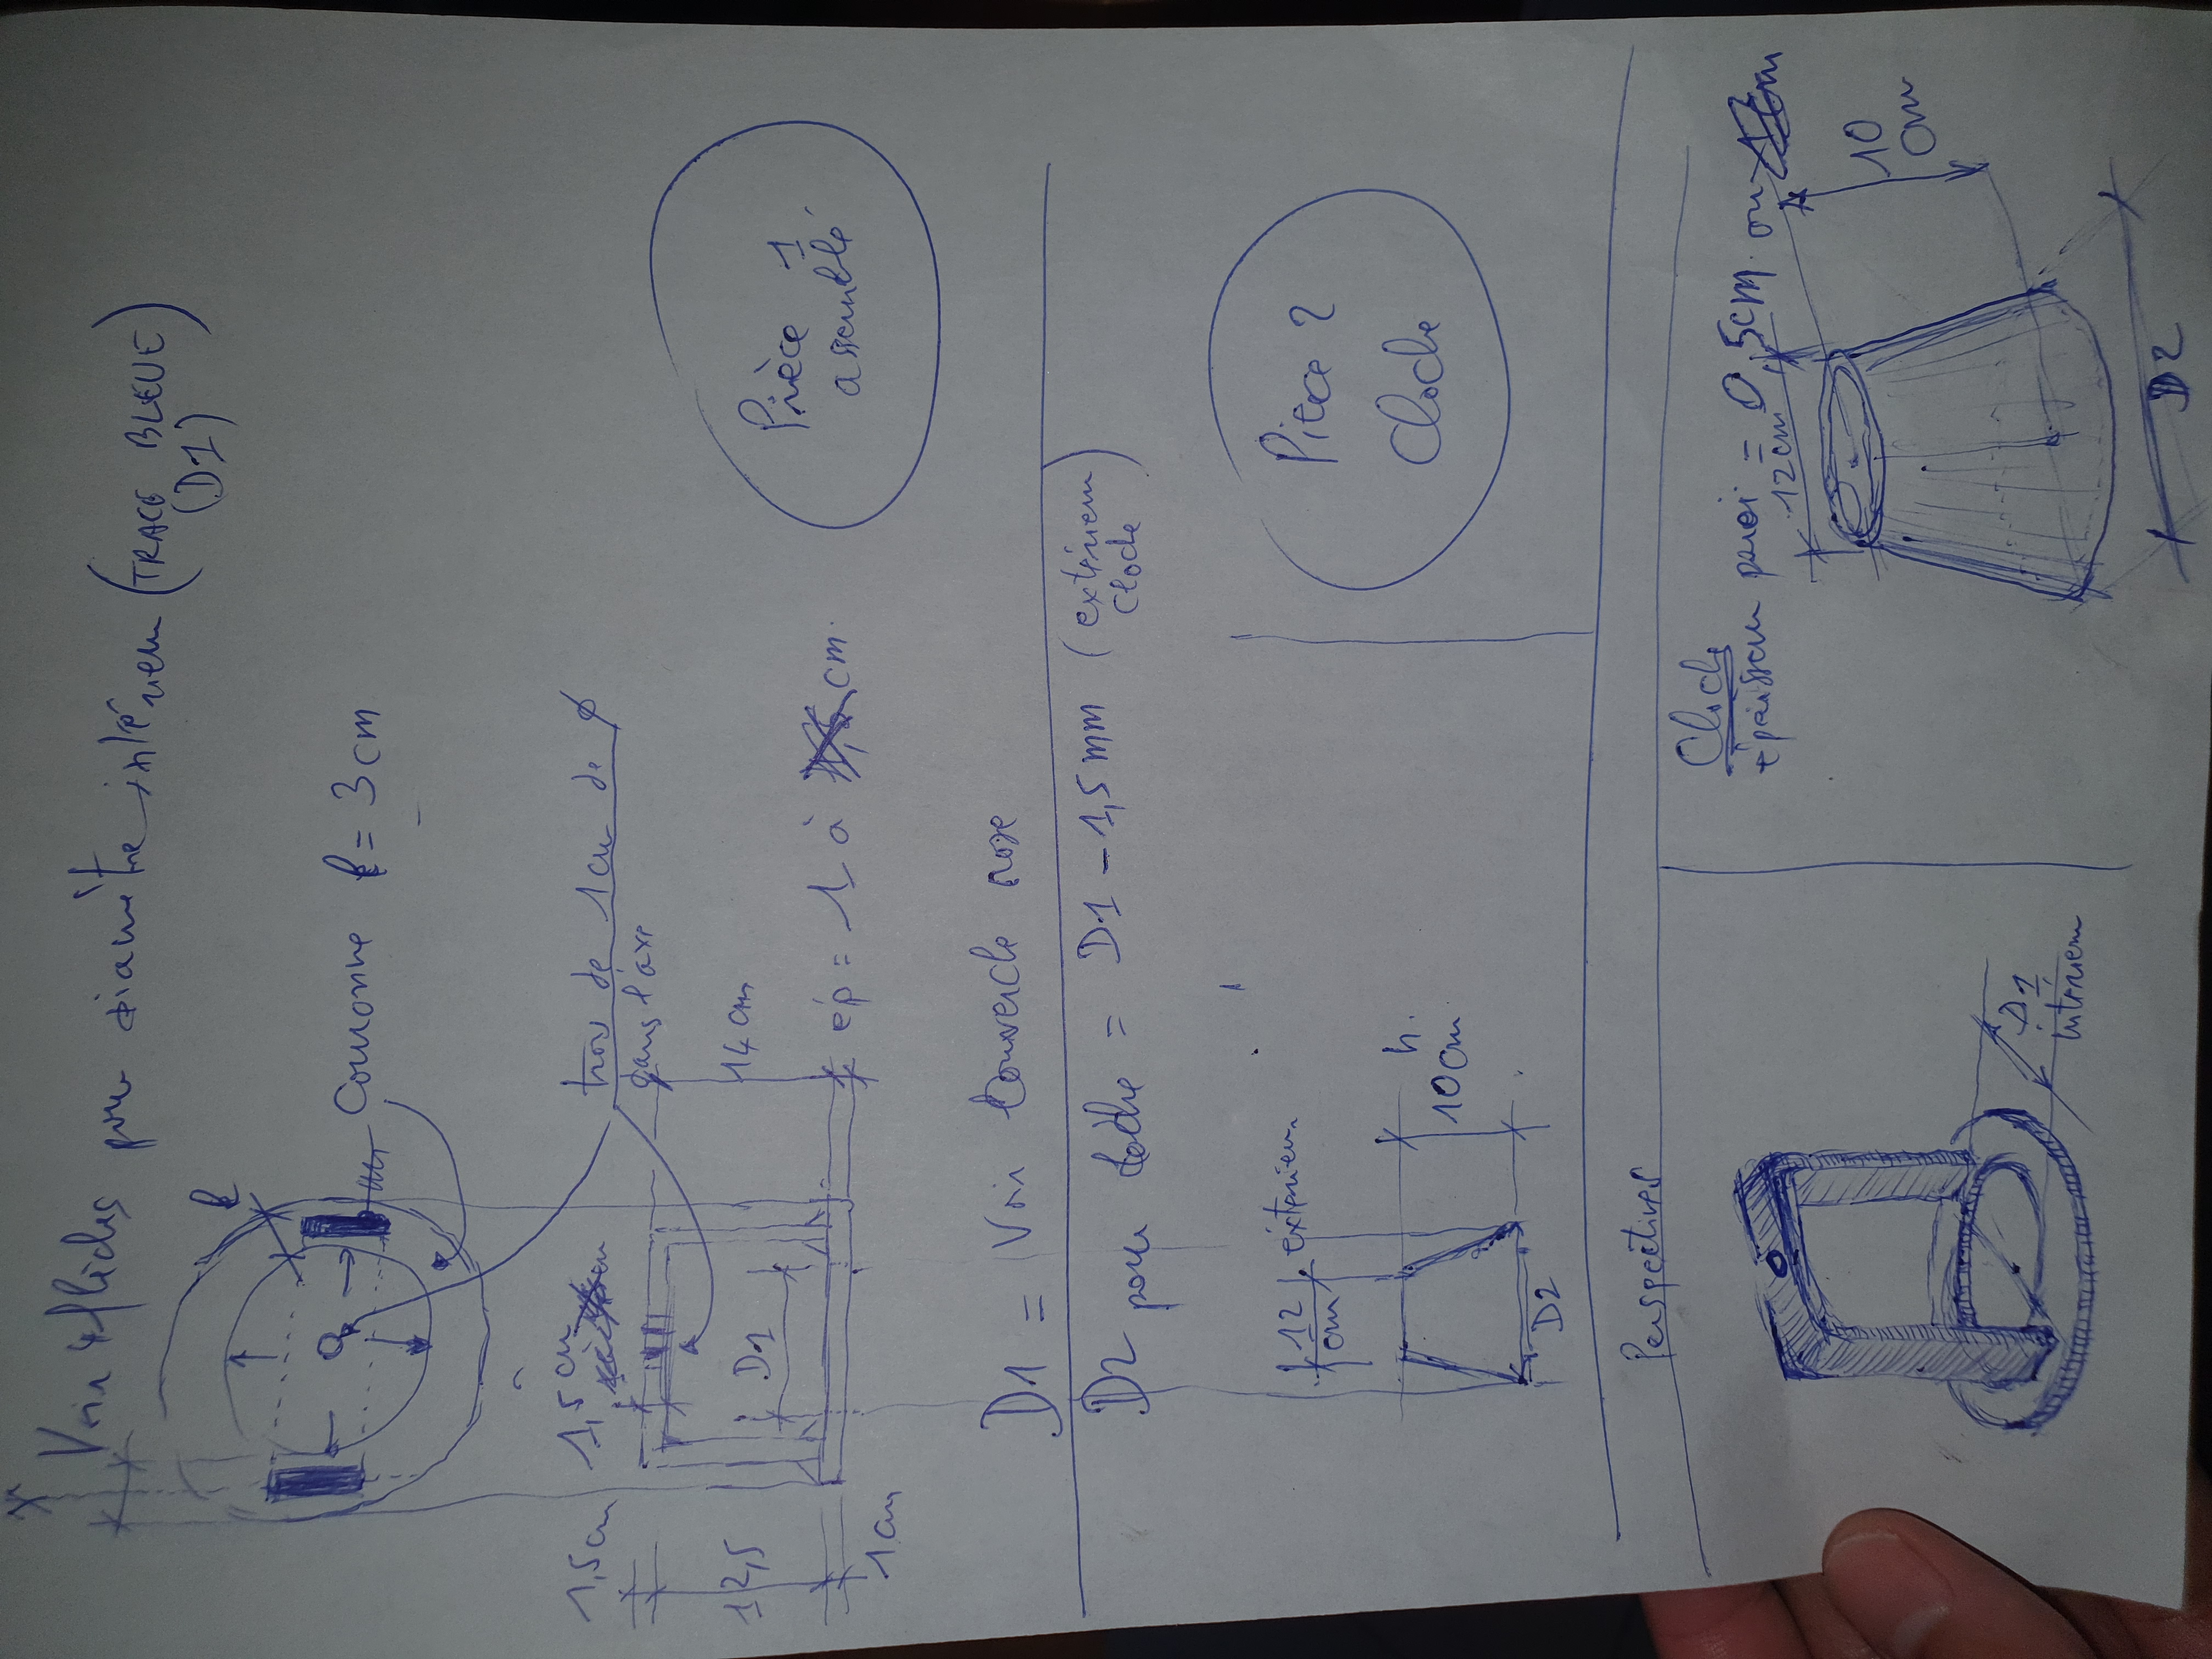 * Voir 4 flèches pour diamètre intérieur (TRACE BLEUE)
(D1)
l
Couronne l = 3 cm
trou de 1 cm de ø
dans l'axe
1,5 cm
1,5 cm
14 cm
12,5
D1
1 cm
ép = 1 à cm.
Pièce 1
assemblé
D1 = Voir couvercle rose
D2 pour cloche = D1 - 1,5 mm (extérieur
cloche)
12
cm
extérieur
h.
10cm
D2
Pièce 2
Cloche
Perspectives
D1
intérieur
Cloche
épaisseur paroi = 0,5cm. ou
12cm
10
cm
D2